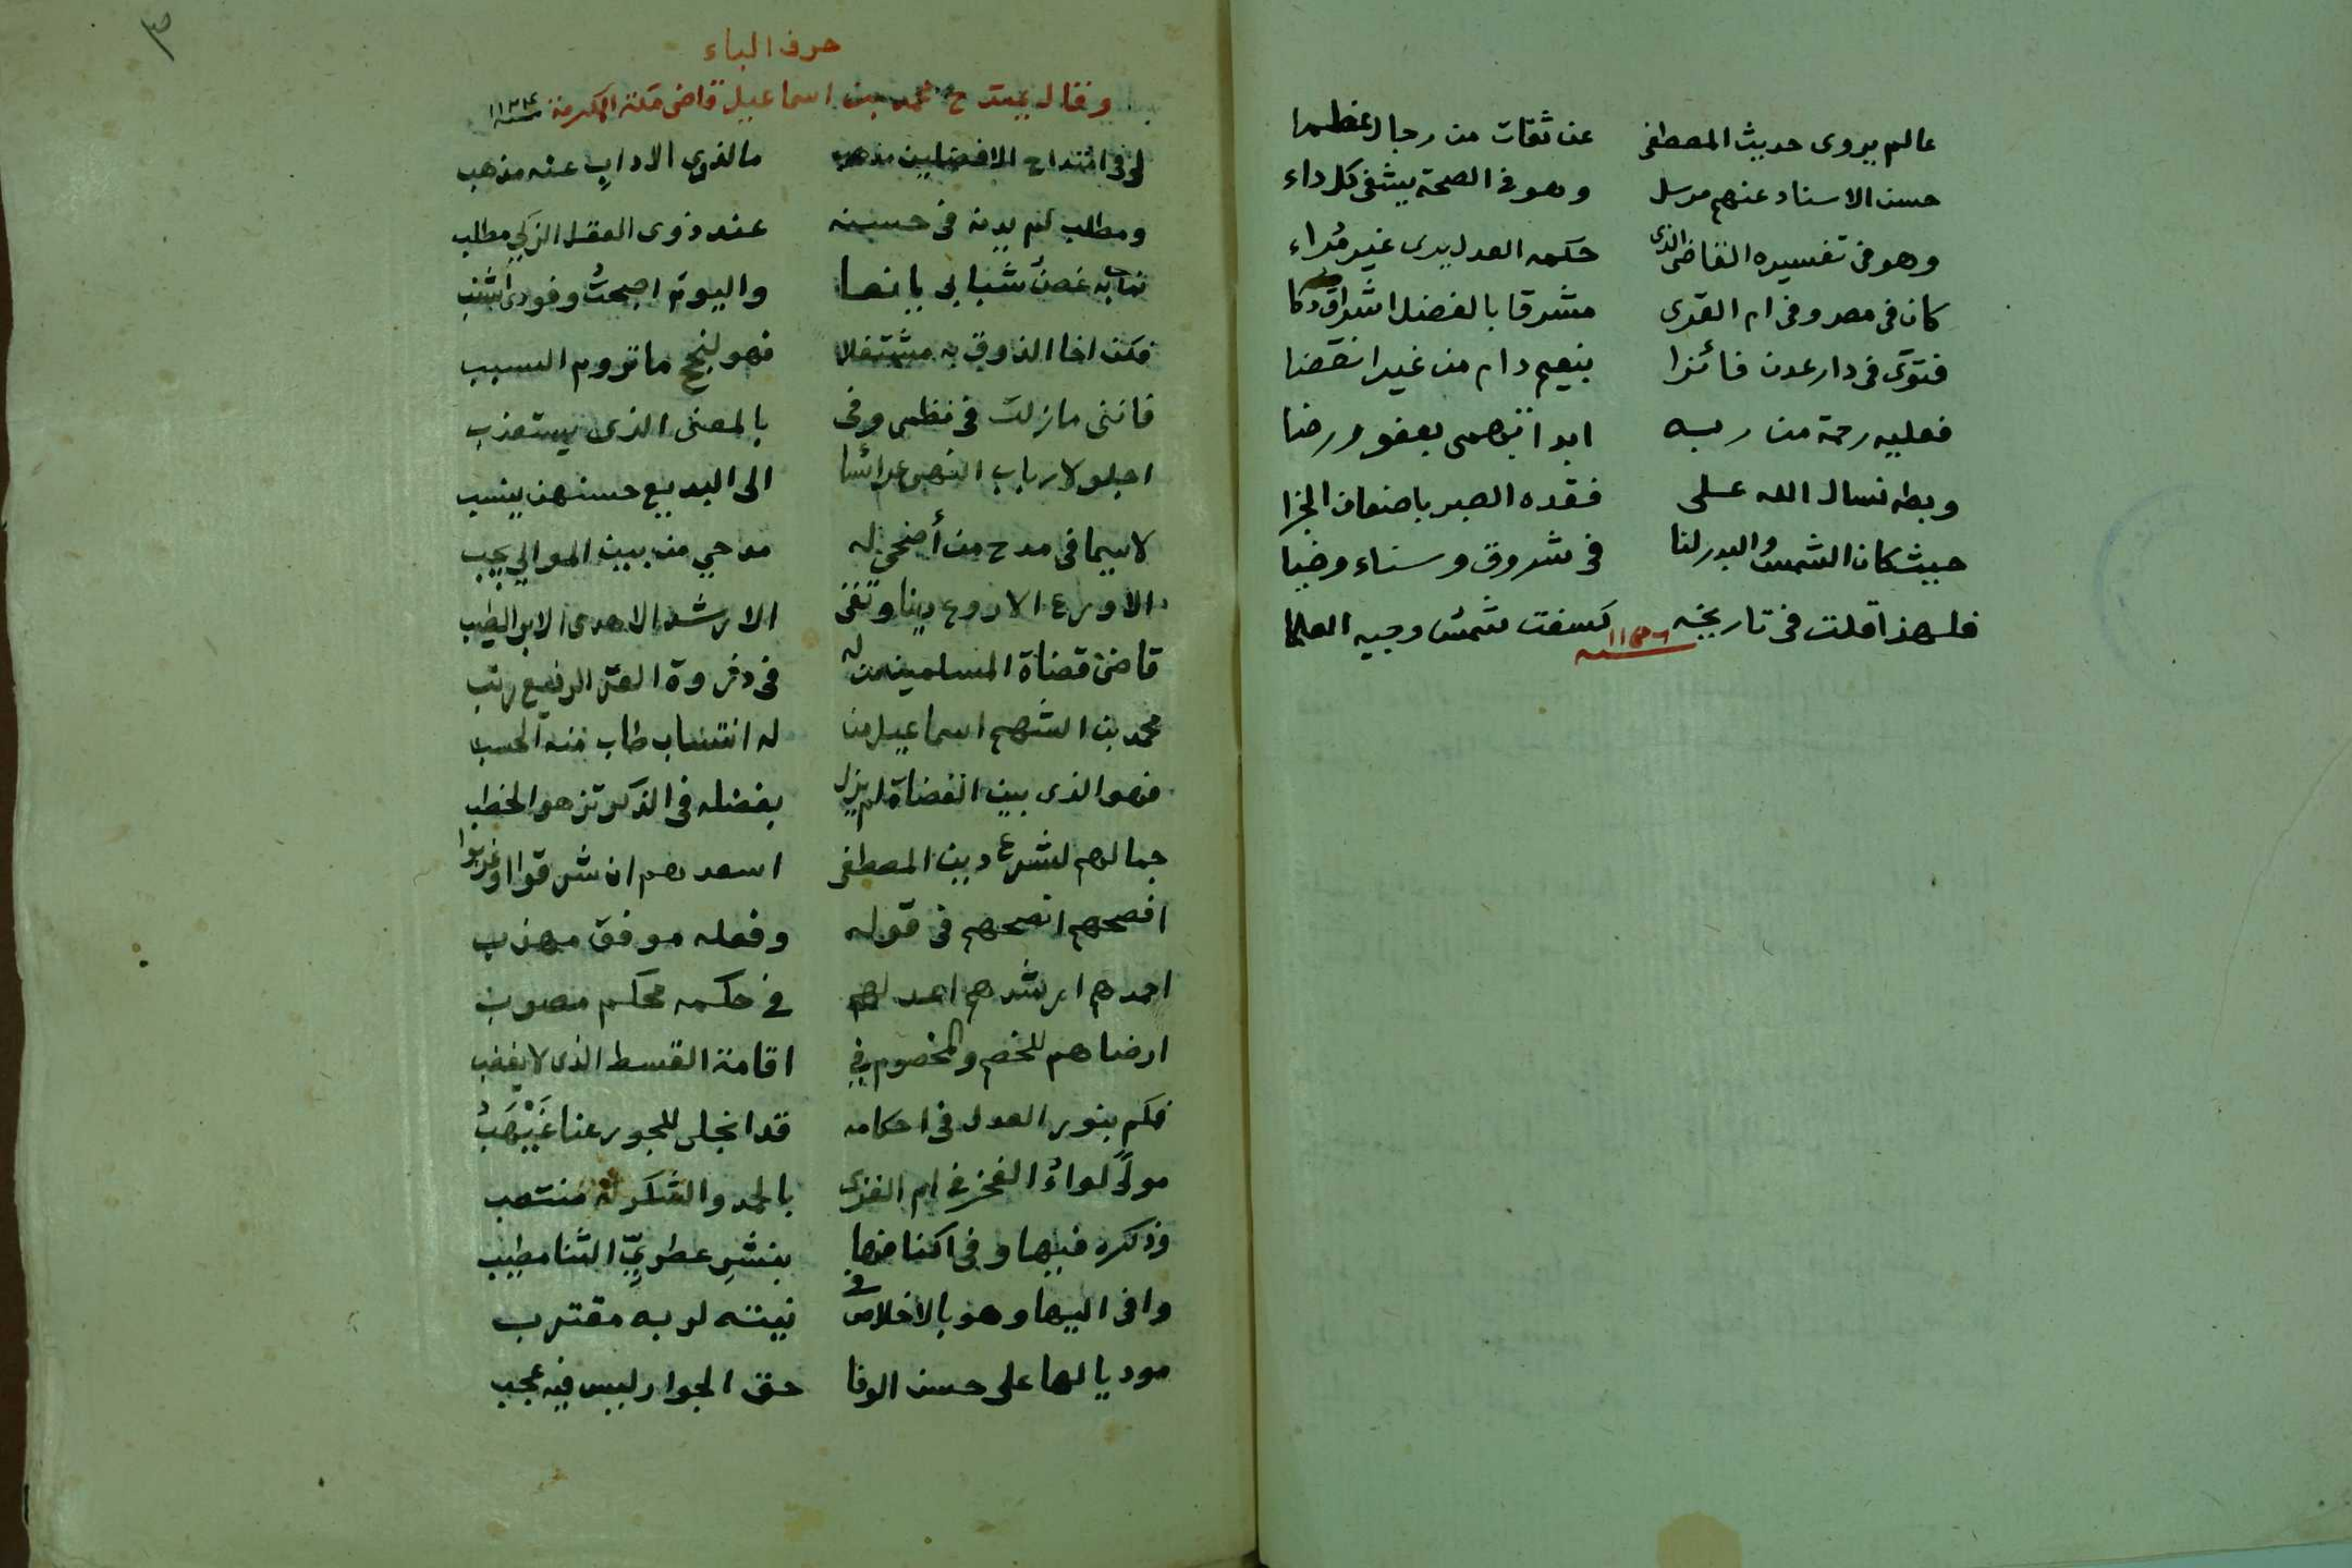 عالم يروى حديث المصطفى عن ثقات من رجال عظما
حسن الاسناد عنهم مرسل وهو فى الصحة يشفى كل داء
وهو فى تفسيره القاضى الذى حكمه العدل يرى غير مُراء
كان فى مصر وفى ام القرى مشرقا بالفضل اشراق ذكا
فتوى فى دار عدن فائزا بنعيم دام من غير انقضا
فعليه رحمة من ربه ابدا تهمى بعفو ورضا
وبطه نسال الله على فقده الصبر باضعاف الجزا
حيث كان الشمس والبدر لنا فى شروق وسناء وضيا
فلهذا قلت فى تاريخه كسفت شمس وجيه العلما
٣
حرف الباء
وقال يمتدح محمد بن اسماعيل قاضى مكة المكرمة سنة ١١٣٤
لى فى امتداح الافضلين مذهب ما لذوى الاداب عنه مذهب
ومطلب لم يدنه فى حسنه عند ذوى العقل الزكي مطلب
به غصن شبابى يانعا واليوم اصبحتُ وفودى اشنب
فكن اخا الذوق به مشتغلا فهو لنجح ما تروم السبب
فاننى مازلت فى نظمى وفى بالمعنى الذى يستعذب
اجلو لارباب النهى عرائسا الى البديع حسنهن ينسب
لاسيما فى مدح من أضحى له مدحي من بين الموالي يجب
الاورع الاروع دينا وتقى الارشد الاهدى الابر الطيب
قاضى قضاة المسلمين من له فى ذروة العز الرفيع رتب
محمد بن الشهم اسماعيل من له انتساب طاب منه الحسب
فهو الذى بين القضاة لم يزل بفضله فى الذكر تزهو الخطب
جمالهم لشرع دين المصطفى اسعدهم ان شرقوا او غربوا
افصحهم انصحهم فى قوله وفعله موفق مهذب
احمدهم ارشدهم اعدلهم في حكمه محكم مصوب
ارضاهم للخصم والمخصوم في اقامة القسط الذى لا يغضب
فكم بنور العدل فى احكامه قد انجلى للجور عنا غَيْهَبُ
مولًى لواءُ الفخر في ام القرى بالحمد والشكر له منتصب
وذكره فيها وفى اكنافها بنشرِ عطريِّ الثنا مطيب
وافى اليها وهو بالاخلاص فى نيته لربه مقترب
موديا لها على حسن الوفا حق الجوار ليس فيه عجب